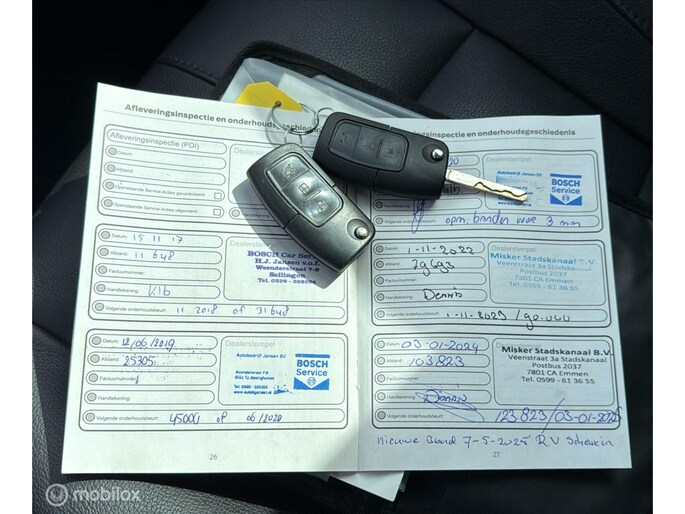 Afleveringsinspectie en onderhoudsgeschieden
Afleveringsinspectie (PDI)
Datum:
Afstand:
Openstaande Service-Acties gecontroleerd:
Openstaande Service-Acties uitgevoerd:
Datum: 15 11 17
Afstand: 11 648
Factuurnummer:
Handtekening: Klb
Volgende onderhoudsbeurt: 11 2018 of 31648
Dealerstempel
BOSCH Car Serv
H.J. Jansen v.o.f.
Weenderstraat 7-9
Sellingen
Tel. 0599 -
Datum: 12/06/2019
Afstand: 25305
Factuurnummer:
Handtekening:
Volgende onderhoudsbeurt: 45000 of 06/2020
Dealerstempel
Autobedrijf Jansen BV
BOSCH
Service
26
onderhoudsgeschiedenis
Autobedrijf Jansen BV
BOSCH
Service
Volgende onderhoudsbeurt: opm. banden voor 3 mm
Datum: 1-11-2022
Afstand:
Factuurnummer:
Handtekening: Dennis
Volgende onderhoudsbeurt: 1-11-2023/90.000
Dealerstempel
Misker Stadskanaal B.V.
Veenstraat 3a Stadskanaal
Postbus 2037
7801 CA Emmen
Tel. 0599 - 61 36 55
Datum: 03-01-2024
Afstand: 103823
Factuurnummer:
Handtekening: Dennis
Volgende onderhoudsbeurt: 123823/03-01-2025
Dealerstempel
Misker Stadskanaal B.V.
Veenstraat 3a Stadskanaal
Postbus 2037
7801 CA Emmen
Tel. 0599 - 61 36 55
nieuwe Band 7-5-2025 R.V
27
mobilox